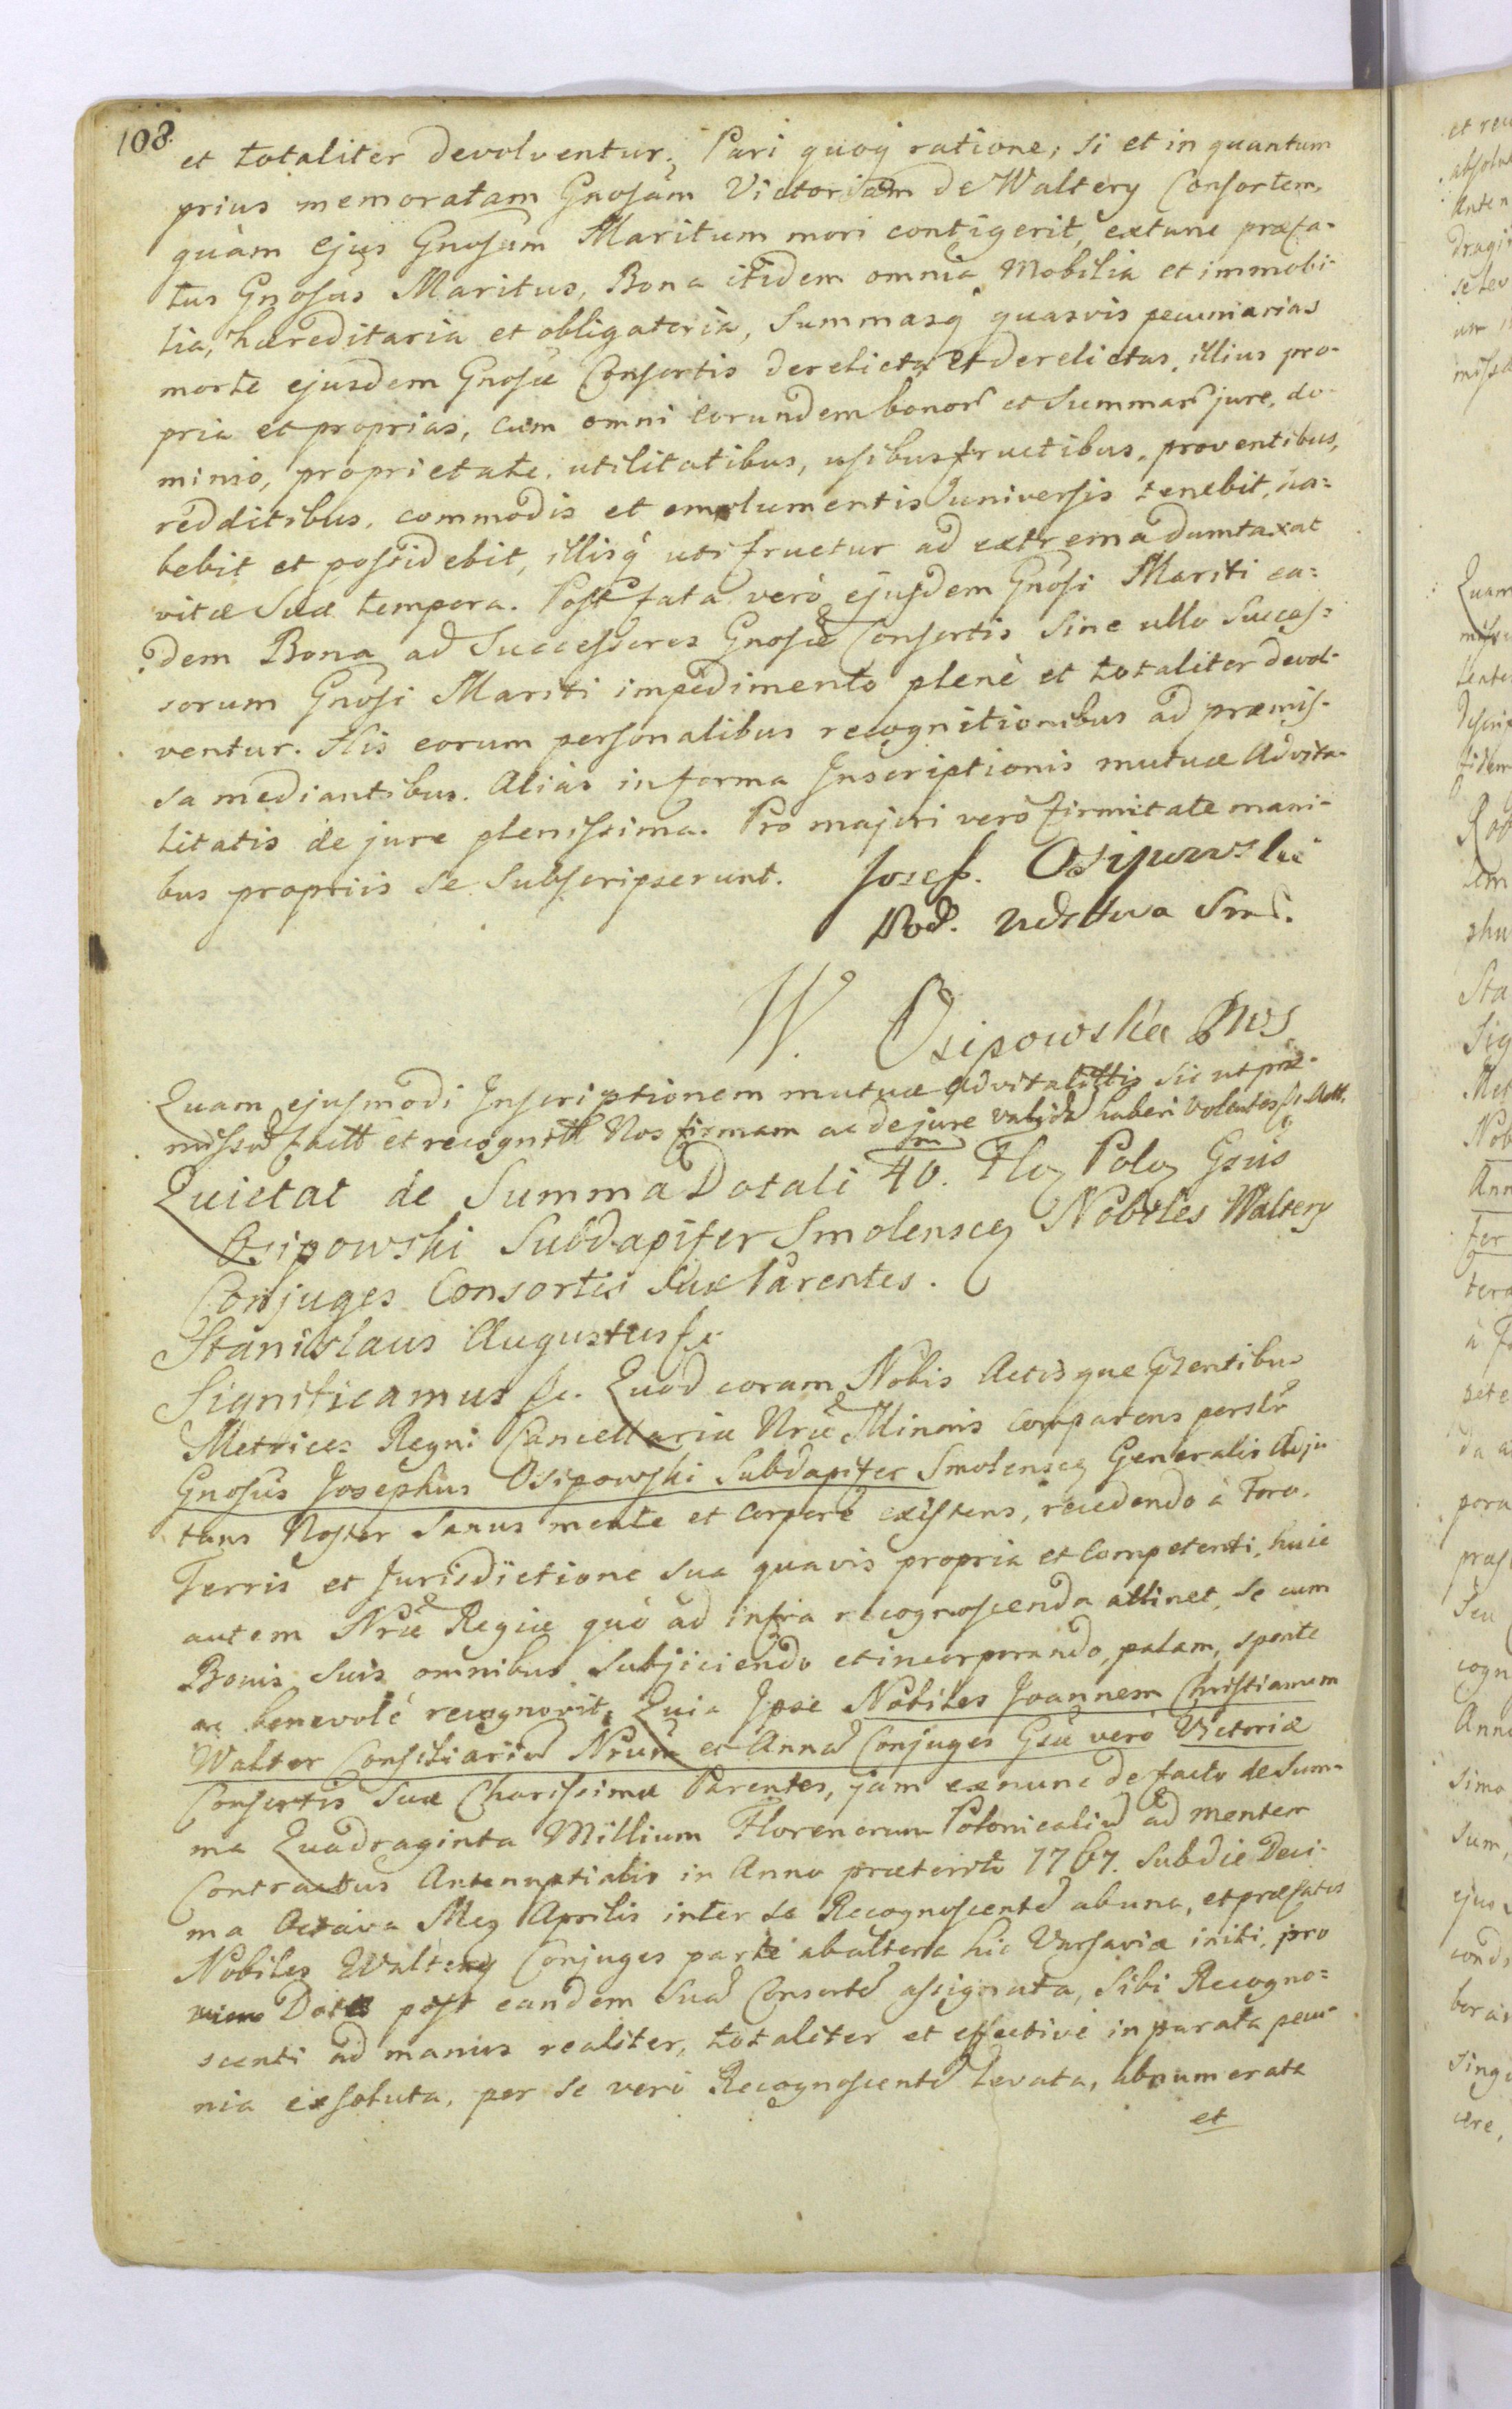 108.
et totaliter devolventur. Pari quoq ratione, si et in quantum
prius memoratam Gnosam Victoriam de Waltery Consortem,
quàm ejus Gnosum Maritum mori contigerit, extunc præfa-
tus Gnosus Maritus, Bona itidem omnia Mobilia et immobi-
lia, hæreditaria et obligatoria, Summasq quasvis pecuniarias
morte ejusdem Gnosæ Consortis derelicta et derelictas, illius pro-
pria et proprias, cum omni eorundem bonor et Summar jure, do-
minio, proprietate, utilitatibus, usibusfructibus, proventibus,
redditibus, commodis et emolumentis universis tenebit, ha=
bebit et possidebit, illisq utifruetur ad extrema dumtaxat
vitæ Suæ tempora. Post fata verò ejusdem Gnosi Mariti ea=
dem Bona ad Successores Gnosæ Consortis Sine ullo Succes=
sorum Gnosi Mariti impedimento plenè et totaliter devol-
ventur. His eorum personalibus recognitionibus ad præmis-
sa mediantibus. Aliàs in forma Inscriptionis mutuæ Advita-
litatis de jure plenissima. Pro majori verò firmitate mani-
bus propriis Se Subscripserunt. Josef. Osipowski
Pod.
W. Osipowska
Quam ejusmodi Inscriptionem mutuæ advitalittis sic ut præ-
missũ factt et recognitt Nos firmam ac de jure validã haberi volentes
Quietat de Summa Dotali 40. m Flo Polo Gsus
Osipowski Subdapifer Smolensce Nobiles Waltery
Conjuges Consortis Suæ Parentes.
Stanislaus Augustus &c
Significamus &c. Quod coram Nobis Actisque pſentibus
Metrices Regni Cancellariæ Nræ Minoris comparens perslr
Gnosus Josephus Osipowski Subdapifer Smolensce Generalis Adju
tans Noster Sanus mente et corpore existens, recedendo à Foro.
Terris et Jurisdictione sua quavis propria et competenti, huic
autem Nræ Regiæ quò ad infra recognoscenda attinet, se cum
Bonis Suis omnibus Subjiciendo et incorporando, palam, sponte
ac benevolé recognovit, Quia Ipse Nobiles Joannem Christianum
Walter Consiliariũ Nrum et Annã Conjuges Gsæ verò Victoriæ
Consortis Suæ Charissimæ Parentes, jam exnunc de facto de Sum-
ma Quadraginta Millium Florenorum Polonicaliũ ad mentem
Contractus Antenuptialis in Anno præterito 1767. Subdie Deci-
ma Octava Mes Aprilis inter se Recognoscentẽ ab una, et præfatos
Nobiles Waltery Conjuges parte ab altera hic Varsaviæ initi, pro
Dote post eandem Suã Consortẽ assignata, Sibi Recogno=
scenti ad manus realiter, totaliter et effectivè in parata pecu-
nia exsoluta, per Se verò Recognoscentẽ levata, abnumerata
et